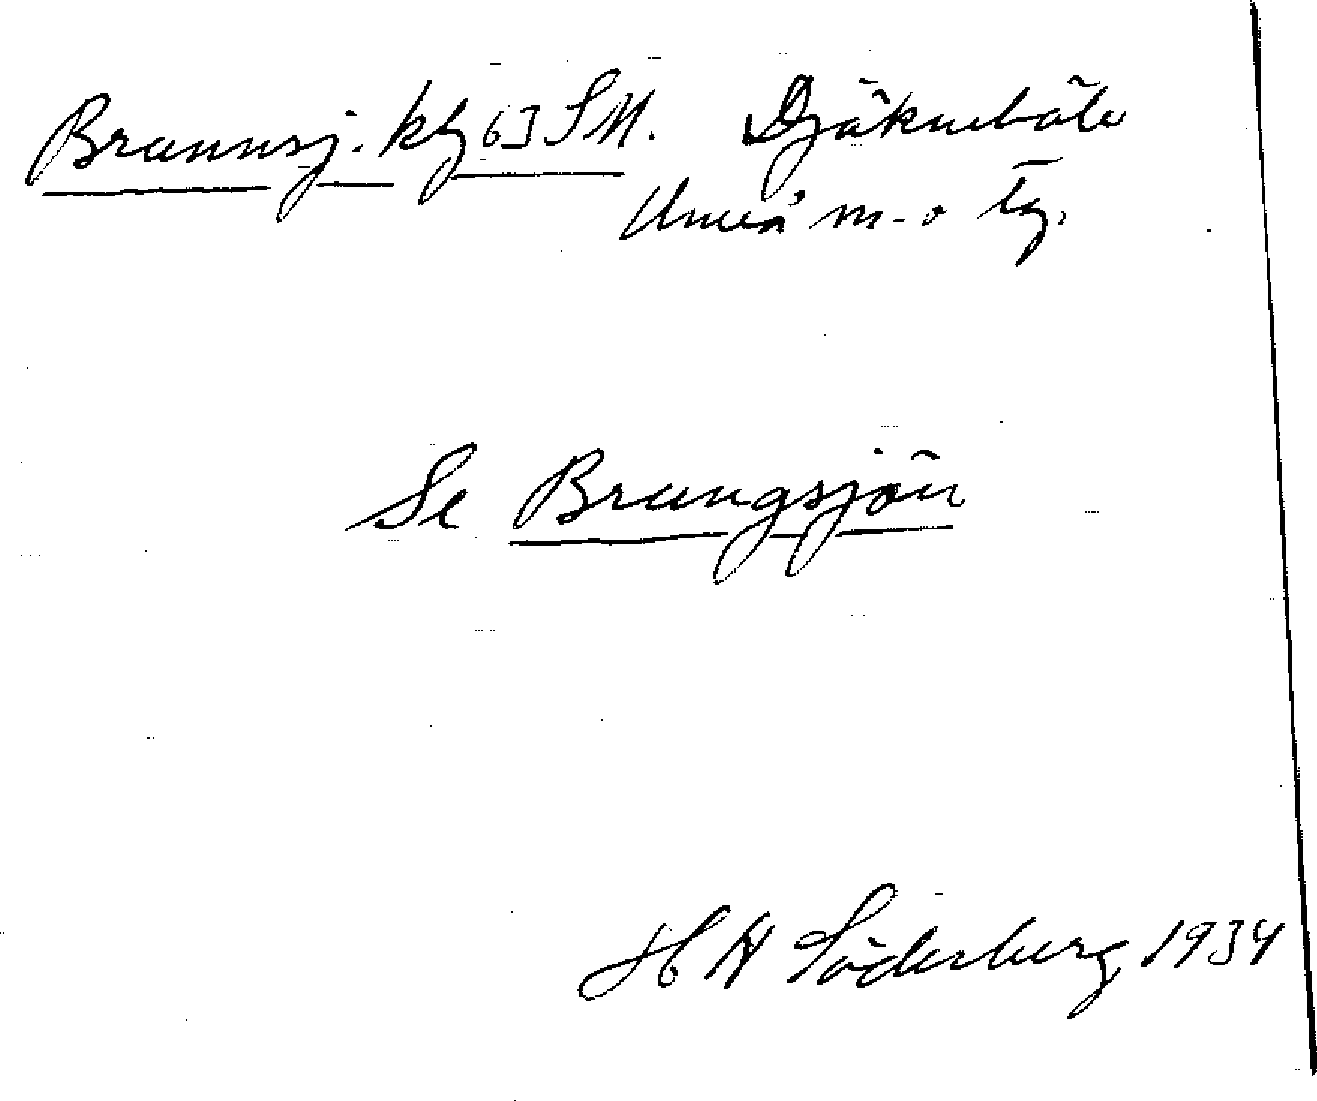 Brunnsj. kbl 63 SM. Djäkneböle
Umeå m. o tg.
Se Brungsjön
H H Söderberg 1934